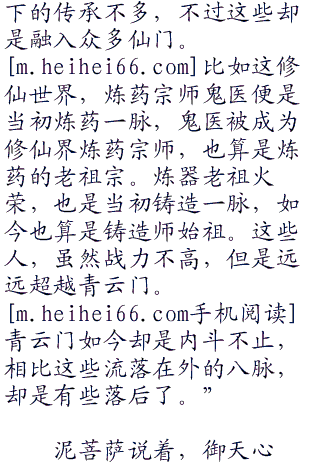 下的传承不多，不过这些却
是融入众多仙门。
[m.heihei66.com]比如这修
仙世界，炼药宗师鬼医便是
当初炼药一脉，鬼医被成为
修仙界炼药宗师，也算是炼
药的老祖宗。炼器老祖火
荣，也是当初铸造一脉，如
今也算是铸造师始祖。这些
人，虽然战力不高，但是远
远超越青云门。
[m.heihei66.com手机阅读]
青云门如今却是内斗不止，
相比这些流落在外的八脉，
却是有些落后了。”
泥菩萨说着，御天心